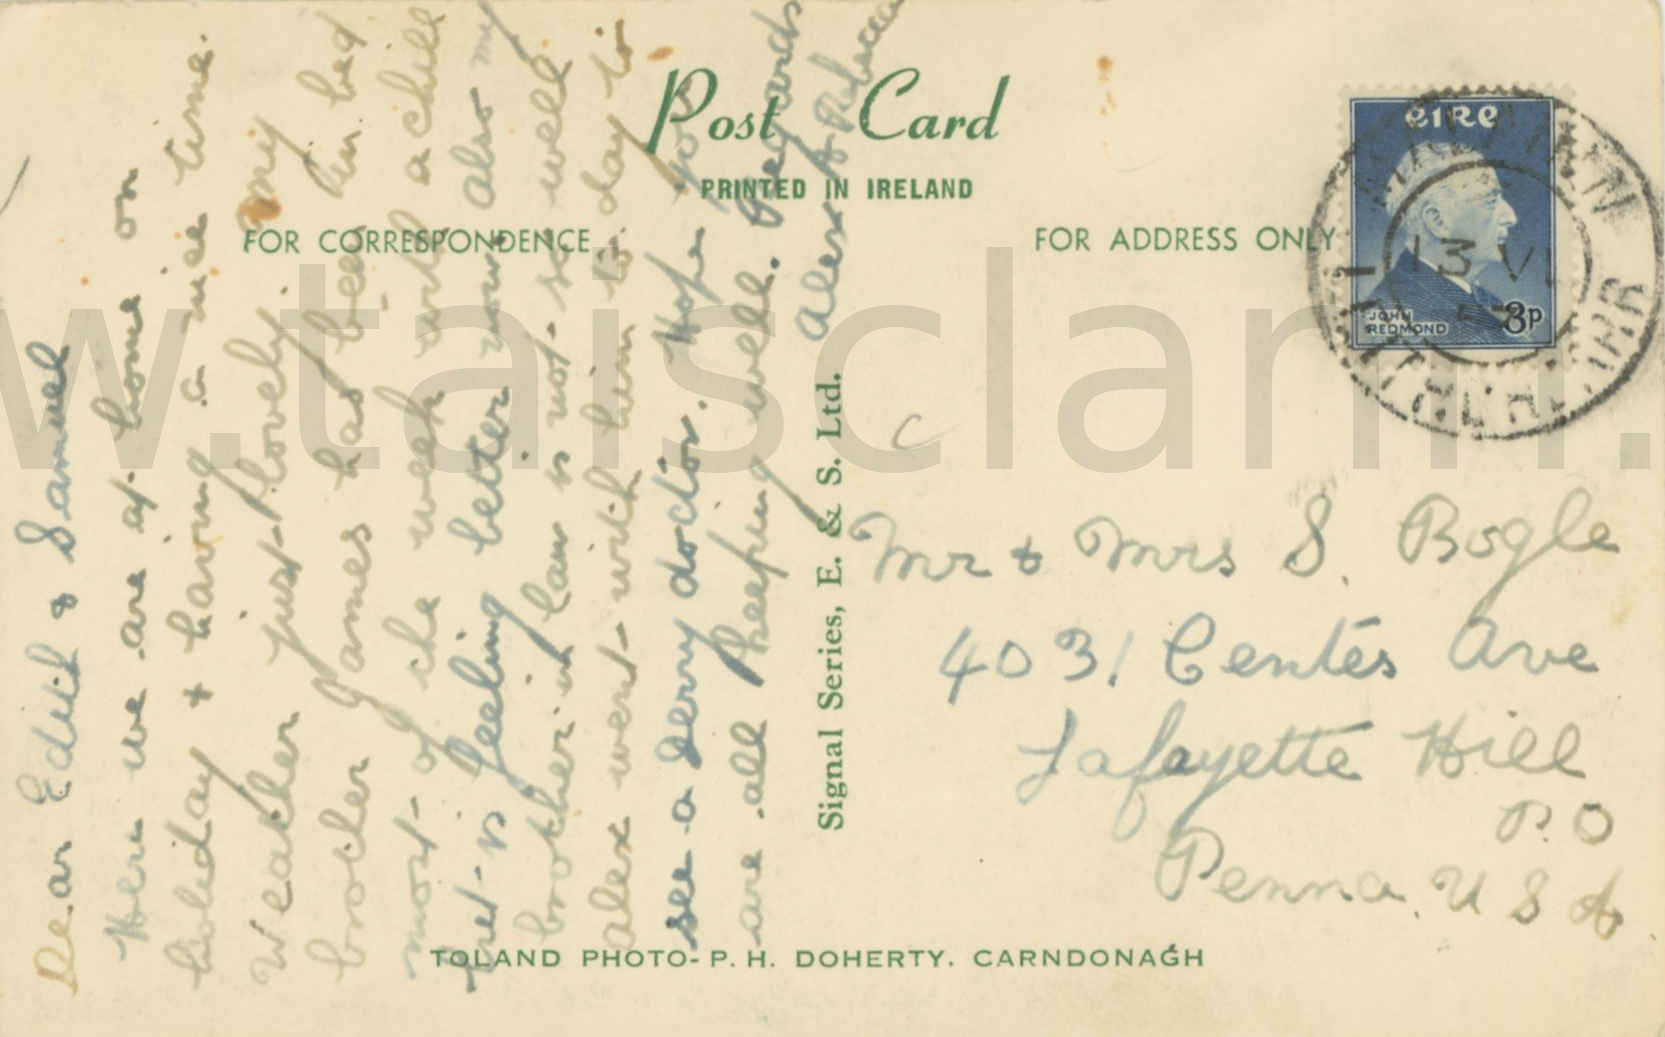 Post Card
PRINTED IN IRELAND
FOR CORRESPONDENCE
FOR ADDRESS ONLY
Dear Edith & Samuel
Here we are at home on
holiday & having a nice time.
Weather just lovely. My
brother James has been in bed
most of the week with a chill
but is feeling better now also my
brother in law is not so well
Alex went with him to day to
see a Derry doctor. Hope you
are all keeping well. Regards
Alex & Rebecca
Signal Series, E. & S. Ltd.
Mr & Mrs S. Bogle
4031 Centés Ave
Lafayette Hill
P.O
Penna. U S A
TOLAND PHOTO- P. H. DOHERTY. CARNDONAGH
éIRe
JOHN
REDMOND
3p
13 VI
w.taisclann.